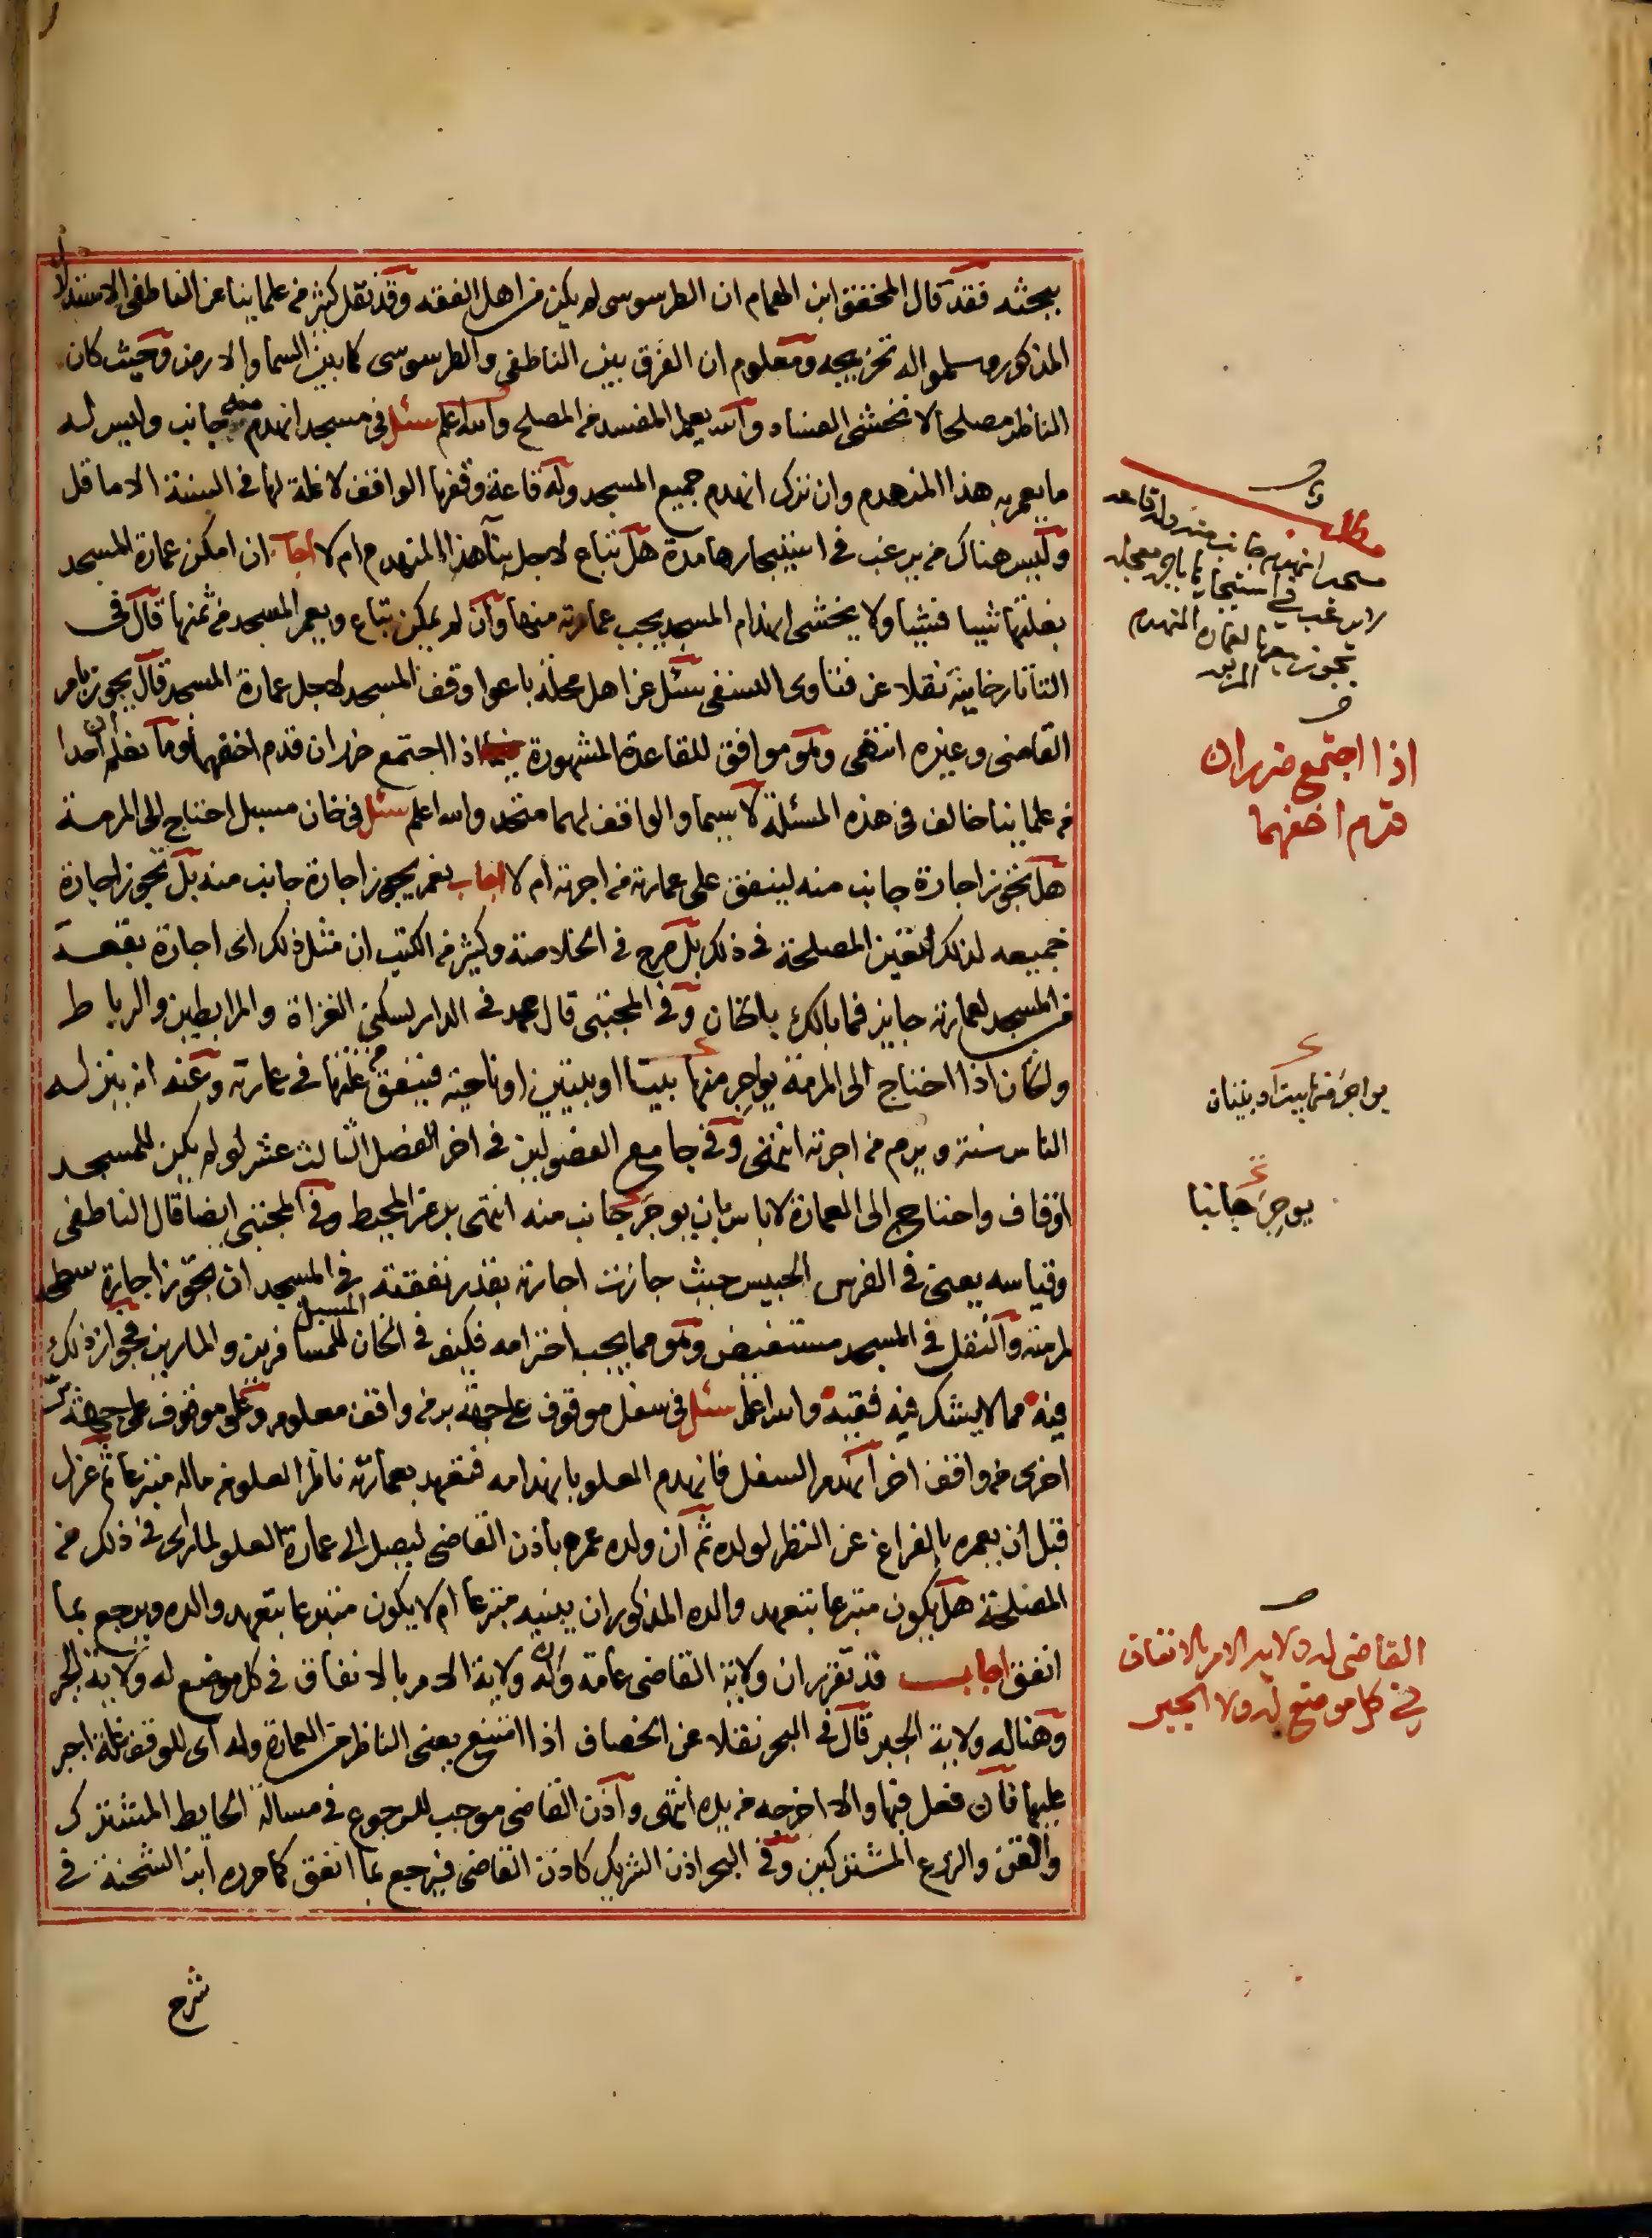 ببحثه فقد قال المحقق ابن الهمام ان الطرسوسى لم يكن من اهل الفقه وقد نقل كثير من علماينا عن الناطفى الاستدلال
المذكور وسلموا له تخريجه ومعلوم ان الفرق بين الناطفى والطرسوسى كما بين السما والارض وحيث كان
الناظر مصلحا لا نخشى الفساد والله يعلم المفسد من المصلح والله اعلم سئل فى مسجد انهدم منه جانب وليس له
ما يعمر به هذا المنهدم وان ترك انهدم جميع المسجد وله قاعة وقفها الواقف لا غلة لها فى السنة الا ما قل
وليس هناك من يرغب فى استيجارها مدة هل تباع لاجل بنآ هذا المنهدم ام لا اجاب ان امكن عمارة المسجد
بغلتها شيا فشيا ولا يخشى انهدام المسجد يجب عمارته منها وان لم يمكن تباع ويعمر المسجد من ثمنها قال فى
التتارخانية نقلا عن فتاوى النسفى سئل عن اهل محلة باعوا وقف المسجد لاجل عمارة المسجد قال يجوز بامر
القاضى وغيره انتهى وهو موافق للقاعدة المشهورة اذا اجتمع ضرران قدم اخفهما وما نعلم ان احدا
من علماينا خالف فى هذه المسئلة لا سيما والواقف لهما متحد والله اعلم سئل فى خان مسبل احتاج الى المرمة
هل تجوز اجارة جانب منه لينفق على عمارته من اجرته ام لا اجاب نعم يجوز اجارة جانب منه بل تجوز اجارة
جميعه لذلك لتعين المصلحة فى ذلك بل صرح فى الخلاصة وكثير من الكتب ان مثل ذلك اى اجارة بقعة
من المسجد لعمارته جايز فما بالك بالخان وفى المجتبى قال محمد فى الدار لسكنى الغزاة والمرابطين والرباط
والخان اذا احتاج الى المرمة يواجر منها بيتا او بيتين او ناحية فينفق من غلتها فى عمارته وعنه انه ينزله
الناس سنة ويرم من اجرته انتهى وفى جامع الفصولين فى اخر الفصل الثالث عشر لو لم يكن للمسجد
اوقاف واحتاج الى العمارة لا باس بان يوجر جانب منه انتهى برمز المحيط وفى المجتبى ايضا قال الناطفى
وقياسه يعنى فى الفرس الحبيس حيث جازت اجارته بقدر نفقته فى المسجد ان تجوز اجارة سطحه
لمرمته والنقل فى المسجد مستفيض وهو مما يجب احترامه فكيف فى الخان المسبل للمسافرين والمارين فجواز ذلك
فيه مما لا يشك فيه فقيه والله اعلم سئل فى سفل موقوف على جهة بر من واقف معلوم وعلو موقوف على جهة بر
اخرى من واقف اخر انهدم السفل فانهدم العلو بانهدامه فتعهد بعمارته ناظر العلو من ماله متبرعا ثم عزل
قبل ان يعمره بالفراغ عن النظر لولده ثم ان ولده عمره باذن القاضى ليصل الى عمارة العلو لما راى فى ذلك من
المصلحة هل يكون متبرعا بتعهد والده المذكور ان يبنيه متبرعا ام لا يكون متبرعا بتعهد والده ويرجع بما
انفق اجاب قد تقرر ان ولاية القاضى عامة وله ولاية الامر بالانفاق فى كل موضع له ولاية الجبر
وهنا له ولاية الجبر قال فى البحر نقلا عن الخصاف اذا امتنع يعنى الناظر من العمارة وله اى للوقف غلة اجبر
عليها فان فعل فبها والا اخرجه من يده انتهى واذن القاضى موجب للرجوع فى مسالة الحايط المشترك
والقن والزرع المشتركين وفى البحر اذن الشريك كاذن القاضى فيرجع بما انفق كما حرره ابن الشحنة فى
شرح
مسجد انهدم جانب منه وله قاعة
لا يرغب فى استيجارها باجر معجله
تجوز بيعها لعمارة المنهدم
اذا اجتمع ضرران
قدم اخفهما
يواجر منها بيت او بيتان
يوجر جانبا
القاضى له ولاية الامر بالانفاق
فى كل موضع له ولا الجبر